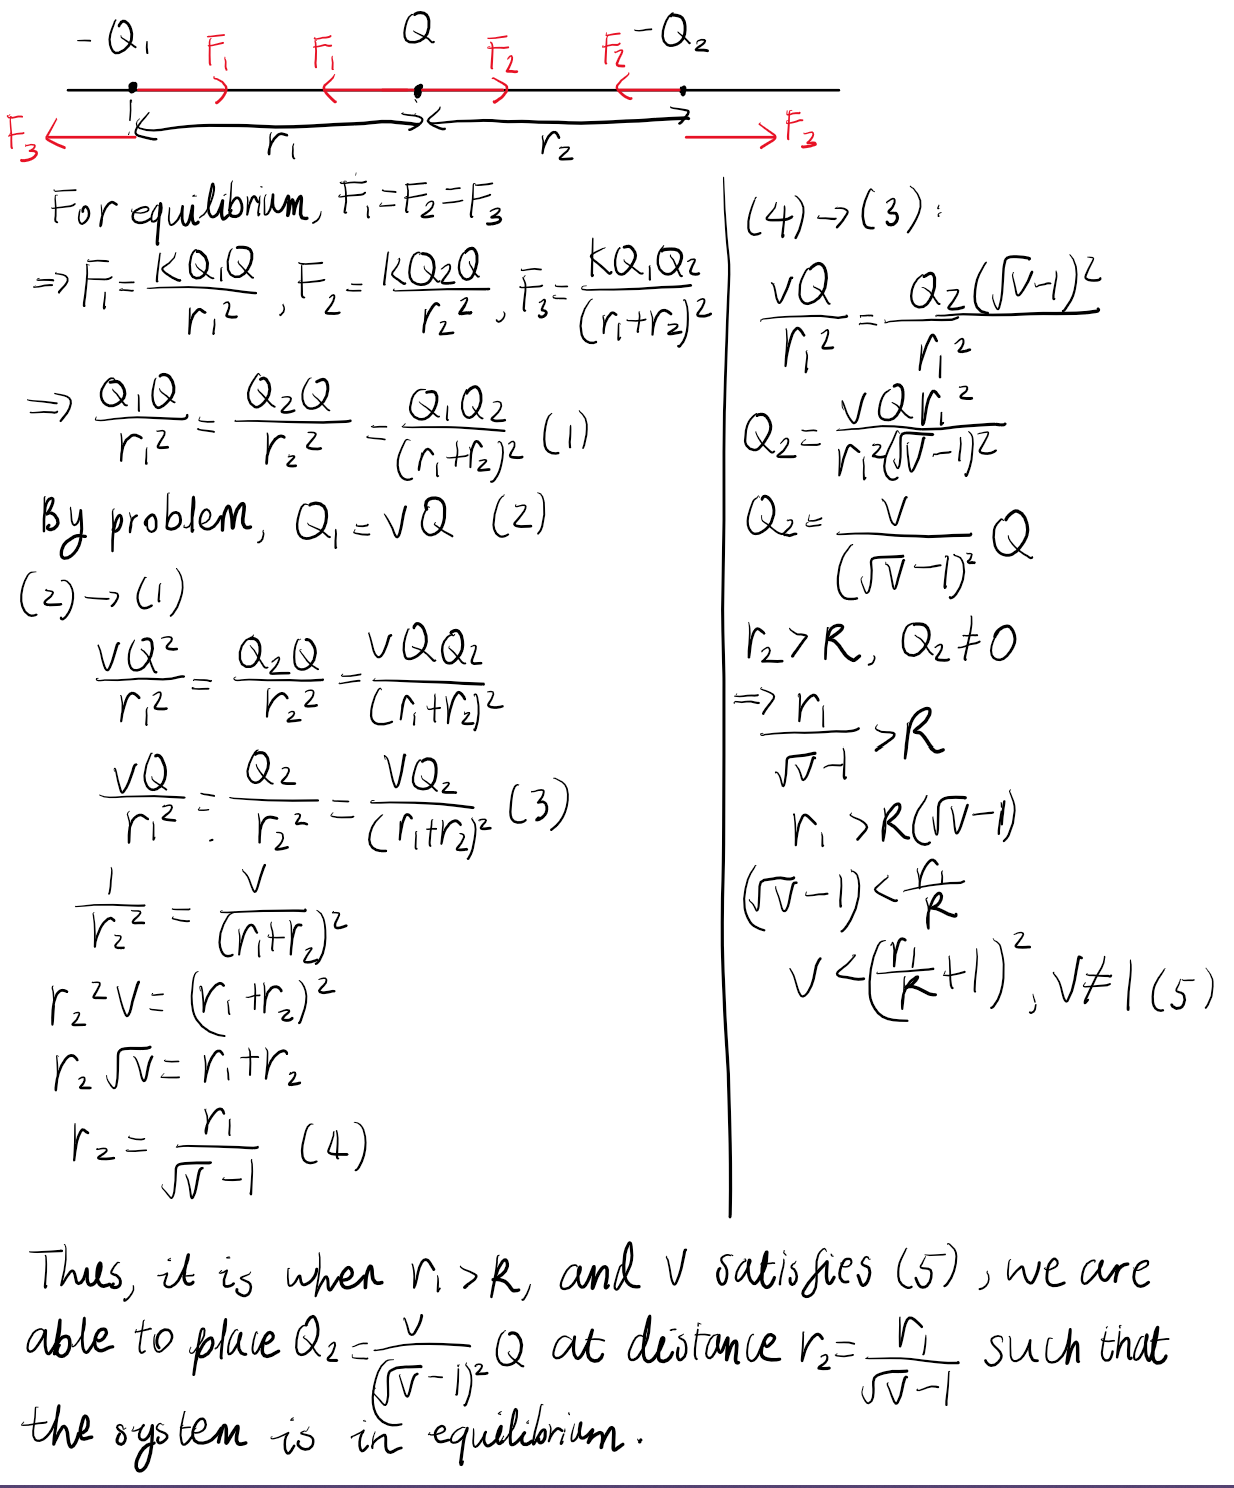 -Q₁ Q -Q₂
F₁ F₁ F₂ F₂
F₃ r₁ r₂ F₃
For equilibrium, F₁=F₂=F₃
=> F₁ = kQ₁Q/r₁², F₂ = kQ₂Q/r₂², F₃ = kQ₁Q₂/(r₁+r₂)²
=> Q₁Q/r₁² = Q₂Q/r₂² = Q₁Q₂/(r₁+r₂)² (1)
By problem, Q₁ = vQ (2)
(2)→(1)
vQ²/r₁² = Q₂Q/r₂² = vQQ₂/(r₁+r₂)²
vQ/r₁² = Q₂/r₂² = vQ₂/(r₁+r₂)² (3)
1/r₂² = v/(r₁+r₂)²
r₂²v = (r₁+r₂)²
r₂√v = r₁+r₂
r₂ = r₁/(√v-1) (4)
(4)→(3):
vQ/r₁² = Q₂(√v-1)²/r₁²
Q₂ = vQr₁²/r₁²(√v-1)²
Q₂ = v/(√v-1)² Q
r₂ > R, Q₂ ≠ 0
=> r₁/(√v-1) > R
r₁ > R(√v-1)
(√v-1) < r₁/R
v < (r₁/R+1)², v ≠ 1 (5)
Thus, it is when r₁ > R, and v satisfies (5), we are
able to place Q₂ = v/(√v-1)² Q at distance r₂ = r₁/(√v-1) such that
the system is in equilibrium.